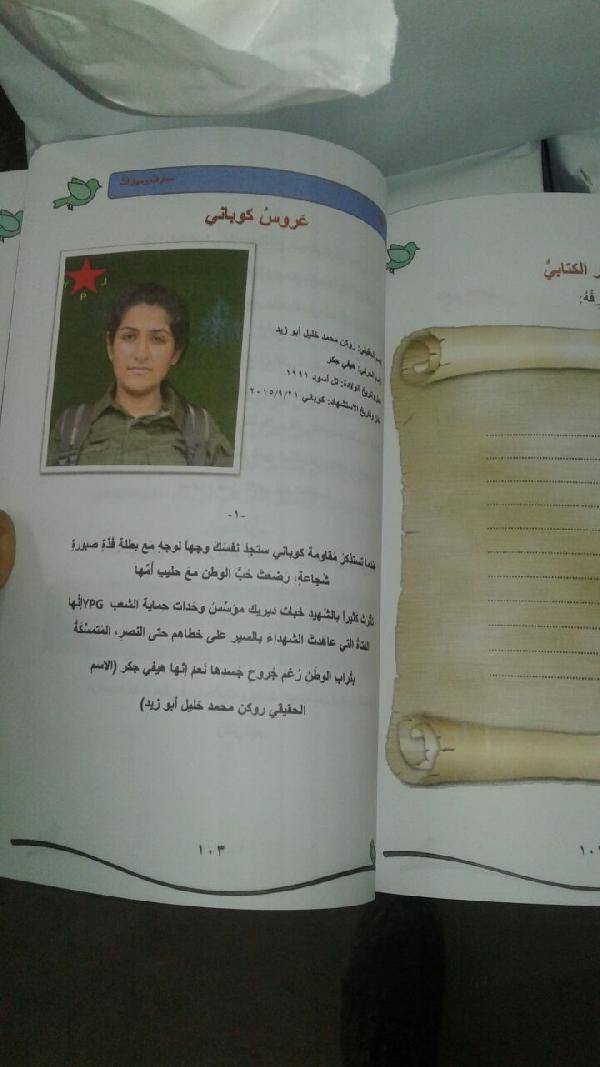 عَروسُ كوباني
Y P J
روكن محمد خليل أبو زيد
هيفي جكر
وتاريخ الولادة: تل أسود ١٩٩١
وتاريخ الاستشهاد: كوباني ٢٠١٥/٩/٢١
-١-
تستذكرُ مُقاومة كوباني ستجدُ نفسَكَ وجهاً لوجهٍ مَع بطلةٍ فذّةٍ صبورةٍ
شُجاعةٍ، رَضعتْ حُبَّ الوطنِ مَع حليبِ أُمّها
تأثرت كثيراً بالشَّهيدِ خبات ديريك مؤسِّسُ وحَدات حماية الشعب YPG إنَّها
الفتاةُ التي عاهدتْ الشهداءَ بالسيرِ على خطاهم حتى النصر، المُتمسِّكةُ
بتُرابِ الوطَنِ رُغم جُروحِ جَسدها نَعم إنَّها هيفي جكر (الاسم
الحقيقي روكن محمد خليل أبو زيد)
١٠٣
الكتابيُّ